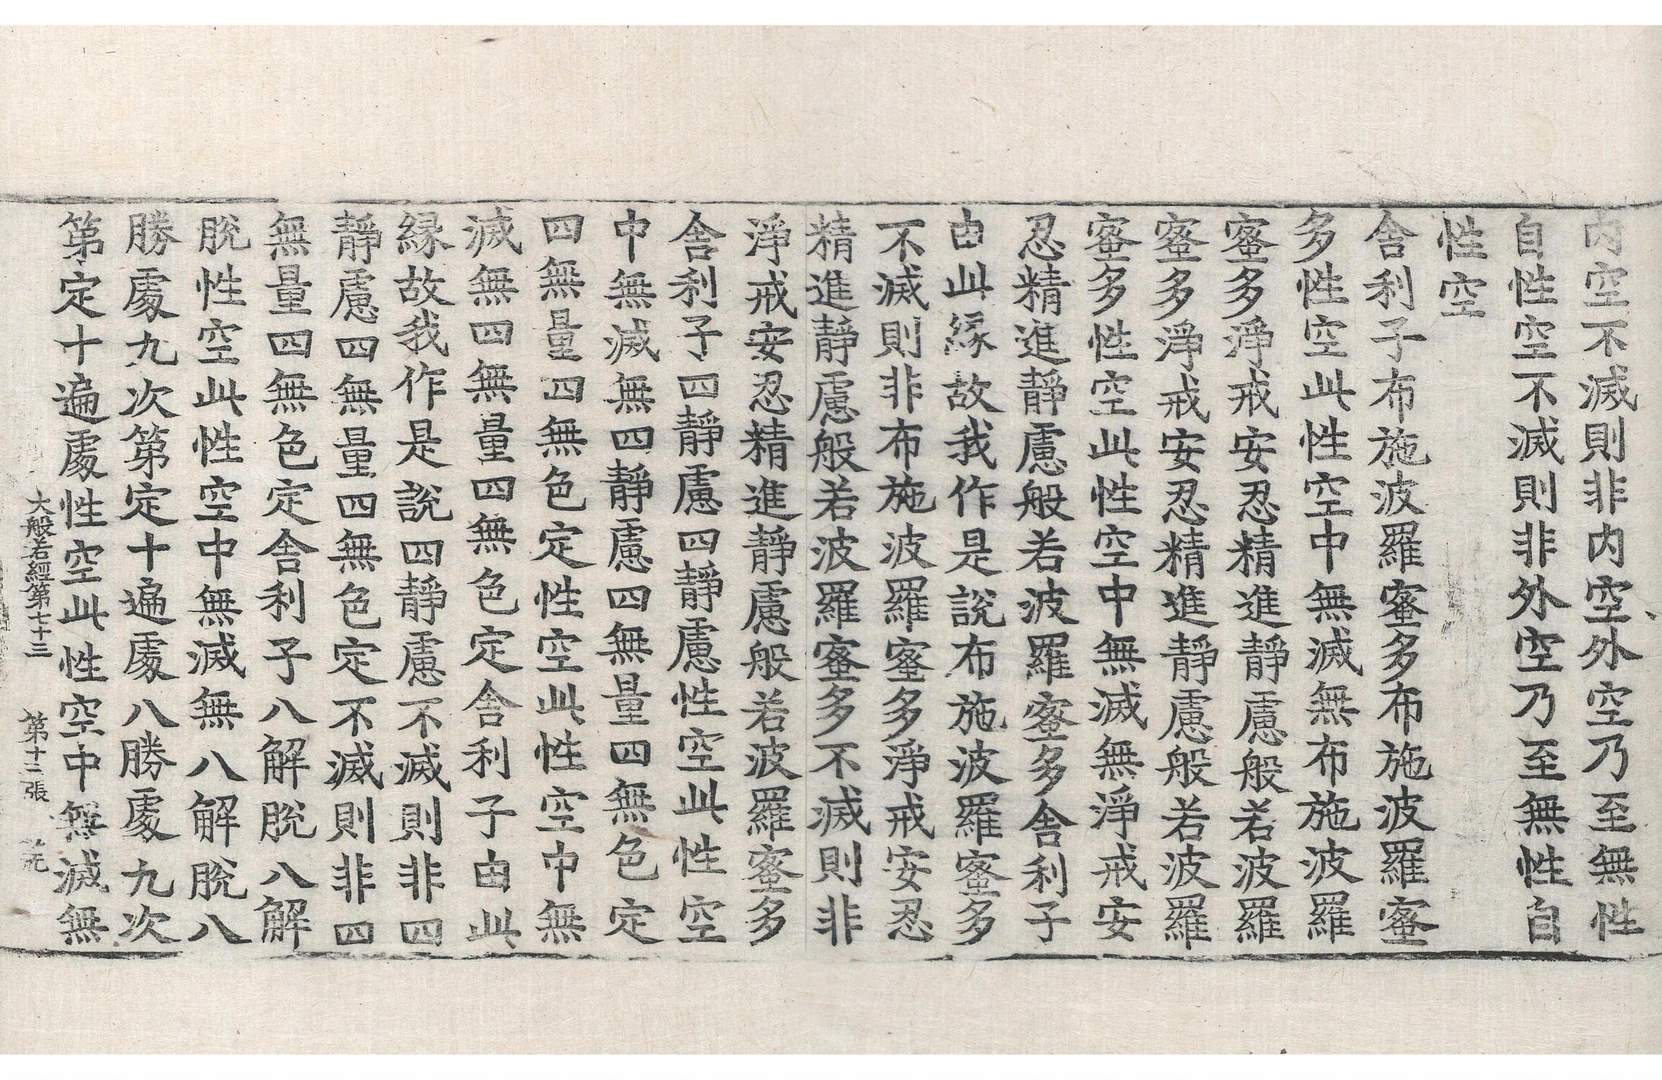 内空不滅則非内空外空乃至無性
自性空不滅則非外空乃至無性自
性空
舎利子布施波羅蜜多布施波羅蜜
多性空此性空中無滅無布施波羅
蜜多淨戒安忍精進靜慮般若波羅
蜜多淨戒安忍精進靜慮般若波羅
蜜多性空此性空中無滅無淨戒安
忍精進靜慮般若波羅蜜多舎利子
由此縁故我作是說布施波羅蜜多
不滅則非布施波羅蜜多淨戒安忍
精進靜慮般若波羅蜜多不滅則非
淨戒安忍精進靜慮般若波羅蜜多
舎利子四靜慮四靜慮性空此性空
中無滅無四靜慮四無量四無色定
四無量四無色定性空此性空中無
滅無四無量四無色定舎利子由此
縁故我作是說四靜慮不滅則非四
靜慮四無量四無色定不滅則非四
無量四無色定舎利子八解脫八解
脫性空此性空中無滅無八解脫八
勝處九次第定十遍處八勝處九次
第定十遍處性空此性空中無滅無
大般若經第七十三 第十二張